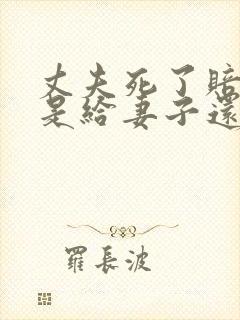 丈夫死了賠
是給妻子還
羅長波